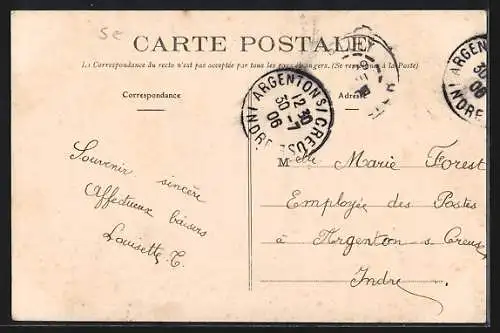 5e
CARTE POSTALE
La Correspondance du recto n'est pas acceptée par tous les pays étrangers. (Se renseigner à la Poste)
Correspondance
Adresse
ARGENTON S/ CREUSE
12 30
30 -7
06
INDRE
ARGENTON
30
06
INDRE
Souvenir sincère
Affectueux baisers
Louisette C.
Melle Marie Forest
Employée des Postes
à Argenton s Creuse
Indre.